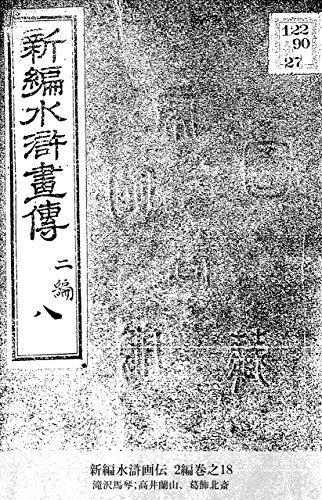 新編水滸畫傳
二編
八
122
90
27
新編水滸画伝 2編巻之18
滝沢馬琴;高井蘭山、葛飾北斎